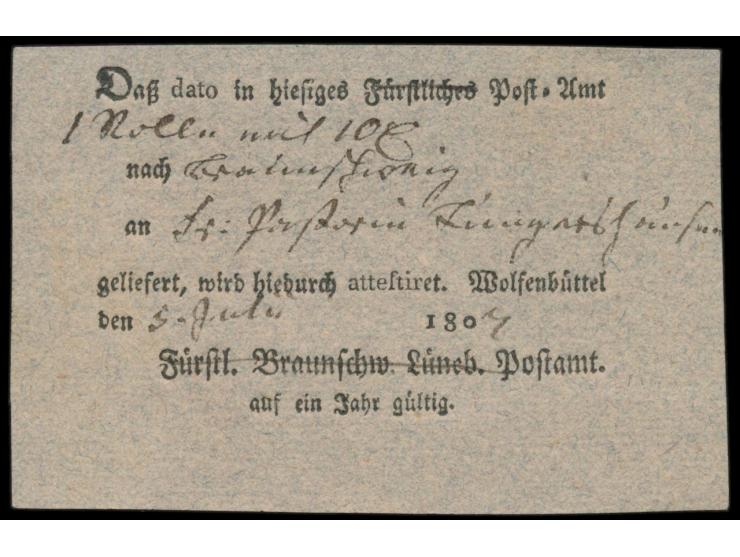 Daß dato in hiesiges Fürstliches Post-Amt
1 Rolle mit 10
nach Braunschweig
an Fr: Pastorin
geliefert, wird hiedurch attestiret. Wolfenbüttel
den 5. July 1807
Fürstl. Braunschw. Lüneb. Postamt.
auf ein Jahr gültig.